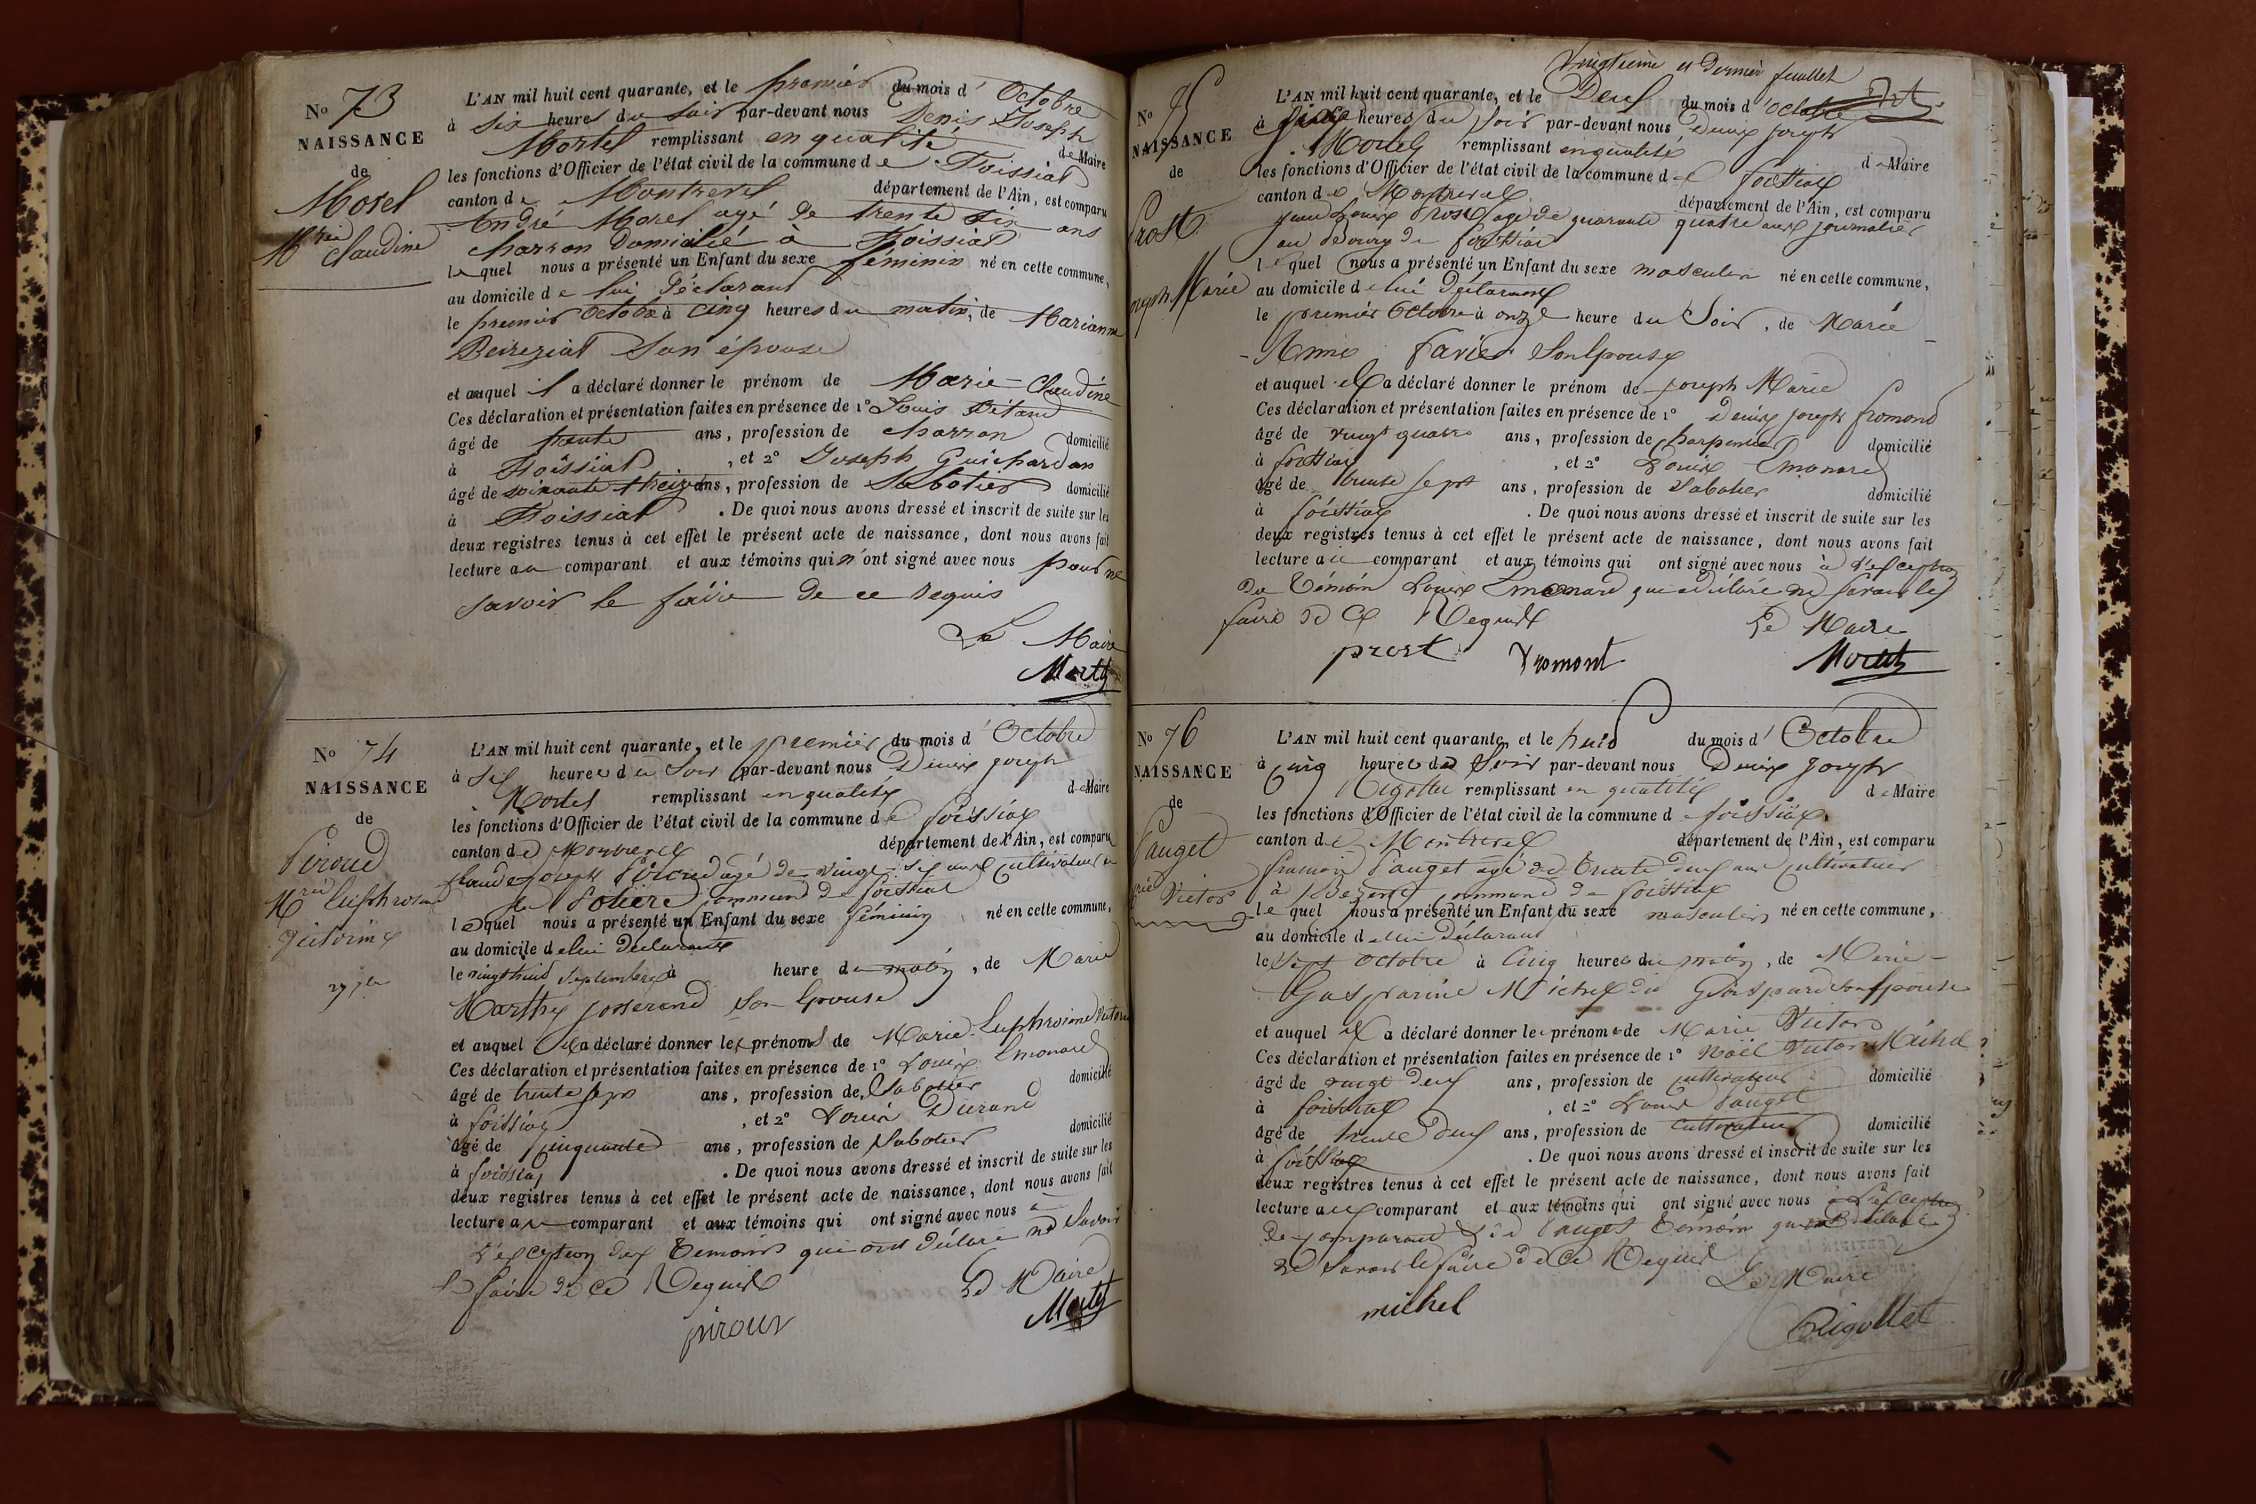 No 73
NAISSANCE
de
Morel
Mrie Claudine
L'AN mil huit cent quarante, et le premier du mois d'Octobre
à six heures du soir par-devant nous Denis Joseph
Mortel remplissant en qualité de Maire
les fonctions d'Officier de l'état civil de la commune de Foissiat
canton de Montrevel département de l'Ain, est comparu
André Morel agé de trente six ans
charron domicilié à Foissiat
lequel nous a présenté un Enfant du sexe féminin né en cette commune,
au domicile de lui déclarant
le premier Octobre à cinq heures du matin, de Marianne
Beireziat Son épouse
et auquel il a déclaré donner le prénom de Marie-Claudine
Ces déclaration et présentation faites en présence de 1o Louis
âgé de trente ans, profession de charron domicilié
à Foissiat, et 2o Joseph Guichardan
âgé de soixante treize ans, profession de Sabotier domicilié
à Foissiat. De quoi nous avons dressé et inscrit de suite sur les
deux registres tenus à cet effet le présent acte de naissance, dont nous avons fait
lecture au comparant et aux témoins qui n'ont signé avec nous pour ne
savoir le faire de ce requis
Le Maire
No 74
NAISSANCE
de
Piroud
Mrie Euphrosine
Victorine
L'AN mil huit cent quarante, et le premier du mois d'Octobre
à six heures du Soir par-devant nous Denix joseph
Mortel remplissant en qualité de Maire
les fonctions d'Officier de l'état civil de la commune de foissiat
canton de Montrevel département de l'Ain, est comparu
Claude joseph Piroud agé de vingt-six ans Cultivateur
commune de foissiat
lequel nous a présenté un Enfant du sexe féminin né en cette commune,
au domicile de lui déclarant
le vingthuit septembre à heure du matin, de Marie
Marthe josserand Son Epouse
et auquel il a déclaré donner les prénoms de Marie Euphrosine Victorine
Ces déclaration et présentation faites en présence de 1o Louix Emonard
âgé de trente sept ans, profession de Sabotier domicilié
à foissiat, et 2o Louis Durand
âgé de Cinquante ans, profession de Sabotier domicilié
à foissiat. De quoi nous avons dressé et inscrit de suite sur les
deux registres tenus à cet effet le présent acte de naissance, dont nous avons fait
lecture au comparant et aux témoins qui ont signé avec nous à
L'exception des Temoins qui ont déclaré ne Savoir
le faire de ce Requis
Le Maire
pirour
Vingtième et dernier feuillet
No 75
NAISSANCE
de
Prost
Joseph Marie
L'AN mil huit cent quarante, et le Deux du mois d'octobre
à heures du soir par-devant nous Denix joseph
Mortel remplissant en qualité de Maire
les fonctions d'Officier de l'état civil de la commune de foissiat
canton de Montrevel département de l'Ain, est comparu
Prost agé de quarante quatre ans journalier
au de foissiat
lequel nous a présenté un Enfant du sexe masculin né en cette commune,
au domicile de lui déclarant
le premier Octobre à onze heure du Soir, de Marie
Anne Favier Son Epouse
et auquel il a déclaré donner le prénom de joseph Marie
Ces déclaration et présentation faites en présence de 1o Denix joseph fromond
âgé de vingt quatre ans, profession de Charpentier domicilié
à foissiat, et 2o Louix Emonard
âgé de trente sept ans, profession de Sabotier domicilié
à foissiat. De quoi nous avons dressé et inscrit de suite sur les
deux registres tenus à cet effet le présent acte de naissance, dont nous avons fait
lecture au comparant et aux témoins qui ont signé avec nous à L'exception
du Témoin Louix Emonard qui a déclaré ne Savoir le
faire de Ce Requis
Le Maire
prost Fromont
No 76
NAISSANCE
de
Pauget
Mrie Victor
L'AN mil huit cent quarante, et le huit du mois d'Octobre
à Cinq heures du Soir par-devant nous Denix joseph
Rigollet remplissant en qualité de Maire
les fonctions d'Officier de l'état civil de la commune de foissiat
canton de Montrevel département de l'Ain, est comparu
Pauget agé de Trente deux ans Cultivateur
à commune de foissiat
lequel nous a présenté un Enfant du sexe masculin né en cette commune,
au domicile de lui déclarant
le Sept octobre à Cinq heures du matin, de Marie
Gasparine Michel dit Gaspard son Epouse
et auquel il a déclaré donner le prénom de Marie Victor
Ces déclaration et présentation faites en présence de 1o Noël Victor Michel
âgé de vingt deux ans, profession de Cultivateur domicilié
à foissiat, et 2o Louis Pauget
âgé de trente deux ans, profession de Cultivateur domicilié
à foissiat. De quoi nous avons dressé et inscrit de suite sur les
deux registres tenus à cet effet le présent acte de naissance, dont nous avons fait
lecture au comparant et aux témoins qui ont signé avec nous à L'exception
de comparant Pauget témoin
ne Savoir le faire de Ce Requis
Le Maire
michel
Rigollet